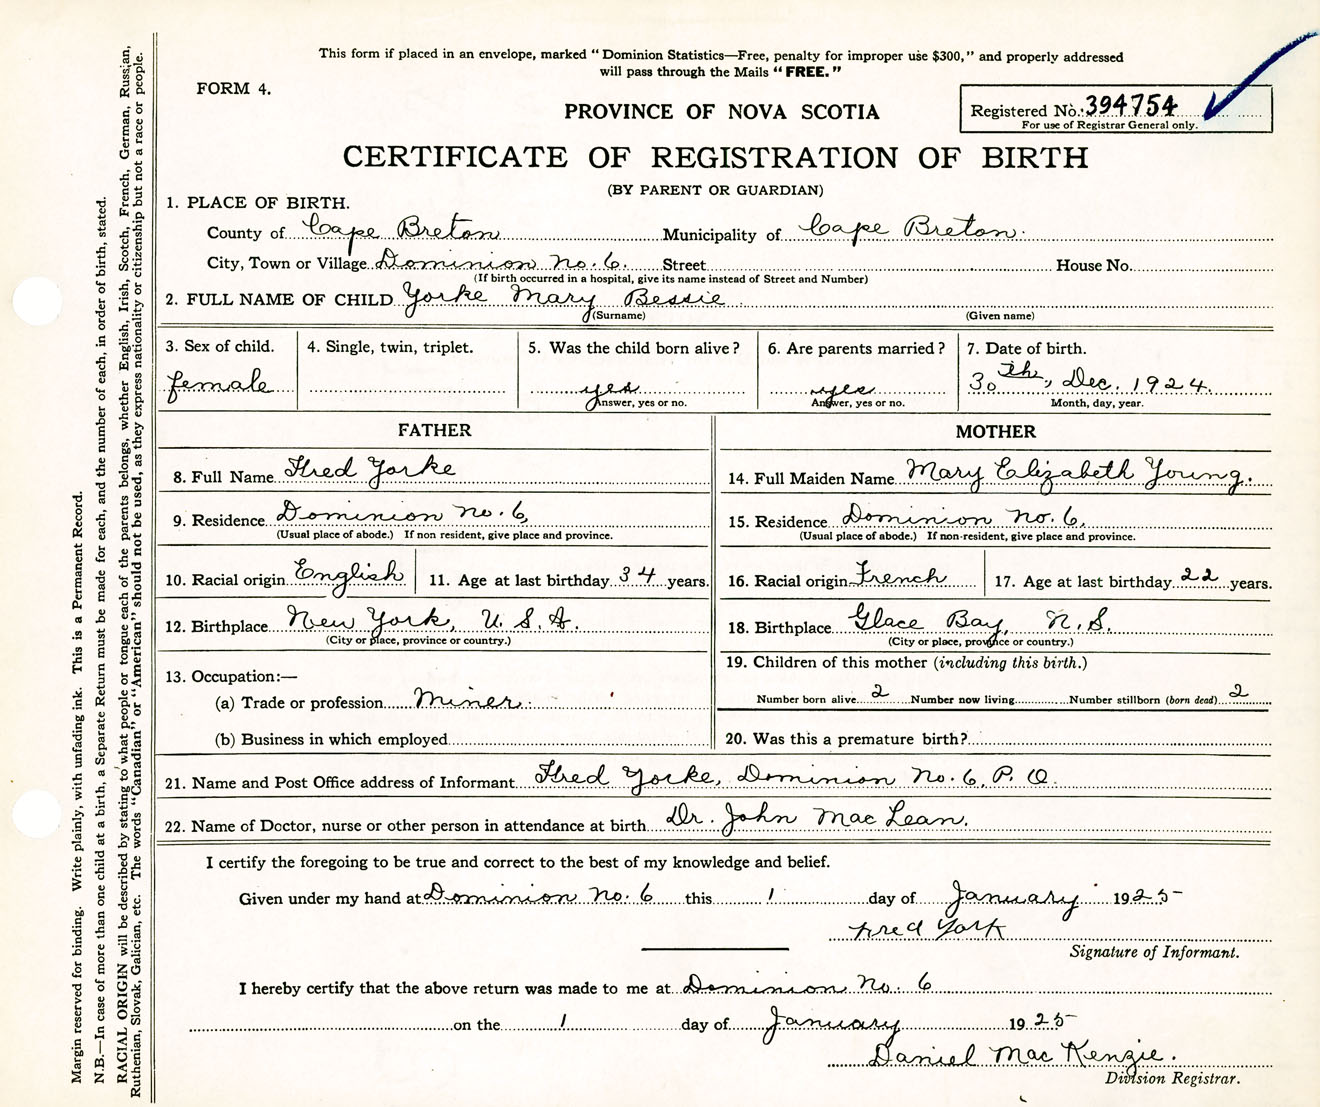 This form if placed in an envelope, marked "Dominion Statistics—Free, penalty for improper use $300," and properly addressed
will pass through the Mails "FREE."
FORM 4.
PROVINCE OF NOVA SCOTIA
Registered No. 394754
For use of Registrar General only.
CERTIFICATE OF REGISTRATION OF BIRTH
(BY PARENT OR GUARDIAN)
1. PLACE OF BIRTH.
County of Cape Breton Municipality of Cape Breton.
City, Town or Village Dominion No. 6. Street House No.
(If birth occurred in a hospital, give its name instead of Street and Number)
2. FULL NAME OF CHILD Yorke Mary Bessie
(Surname) (Given name)
3. Sex of child. 4. Single, twin, triplet. 5. Was the child born alive? 6. Are parents married? 7. Date of birth.
female yes yes 30th, Dec. 1924.
Answer, yes or no. Answer, yes or no. Month, day, year.
FATHER MOTHER
8. Full Name Fred Yorke 14. Full Maiden Name Mary Elizabeth Young.
9. Residence Dominion No. 6, 15. Residence Dominion No. 6,
(Usual place of abode.) If non resident, give place and province. (Usual place of abode.) If non-resident, give place and province.
10. Racial origin English 11. Age at last birthday 34 years. 16. Racial origin French 17. Age at last birthday 22 years.
12. Birthplace New York, U.S.A. 18. Birthplace Glace Bay, N.S.
(City or place, province or country.) (City or place, province or country.)
13. Occupation:— 19. Children of this mother (including this birth.)
(a) Trade or profession Miner. Number born alive 2 Number now living Number stillborn (born dead) 2
(b) Business in which employed 20. Was this a premature birth?
21. Name and Post Office address of Informant Fred Yorke, Dominion No. 6, P. O.
22. Name of Doctor, nurse or other person in attendance at birth Dr. John MacLean.
I certify the foregoing to be true and correct to the best of my knowledge and belief.
Given under my hand at Dominion No. 6 this 1 day of January 1925
Fred York
Signature of Informant.
I hereby certify that the above return was made to me at Dominion No. 6
on the 1 day of January 1925
Daniel MacKenzie.
Division Registrar.
Margin reserved for binding. Write plainly, with unfading ink. This is a Permanent Record.
N.B.—In case of more than one child at a birth, a Separate Return must be made for each, and the number of each, in order of birth, stated.
RACIAL ORIGIN will be described by stating to what people or tongue each of the parents belongs, whether English, Irish, Scotch, French, German, Russian,
Ruthenian, Slovak, Galician, etc. The words "Canadian" or "American" should not be used, as they express nationality or citizenship but not a race or people.